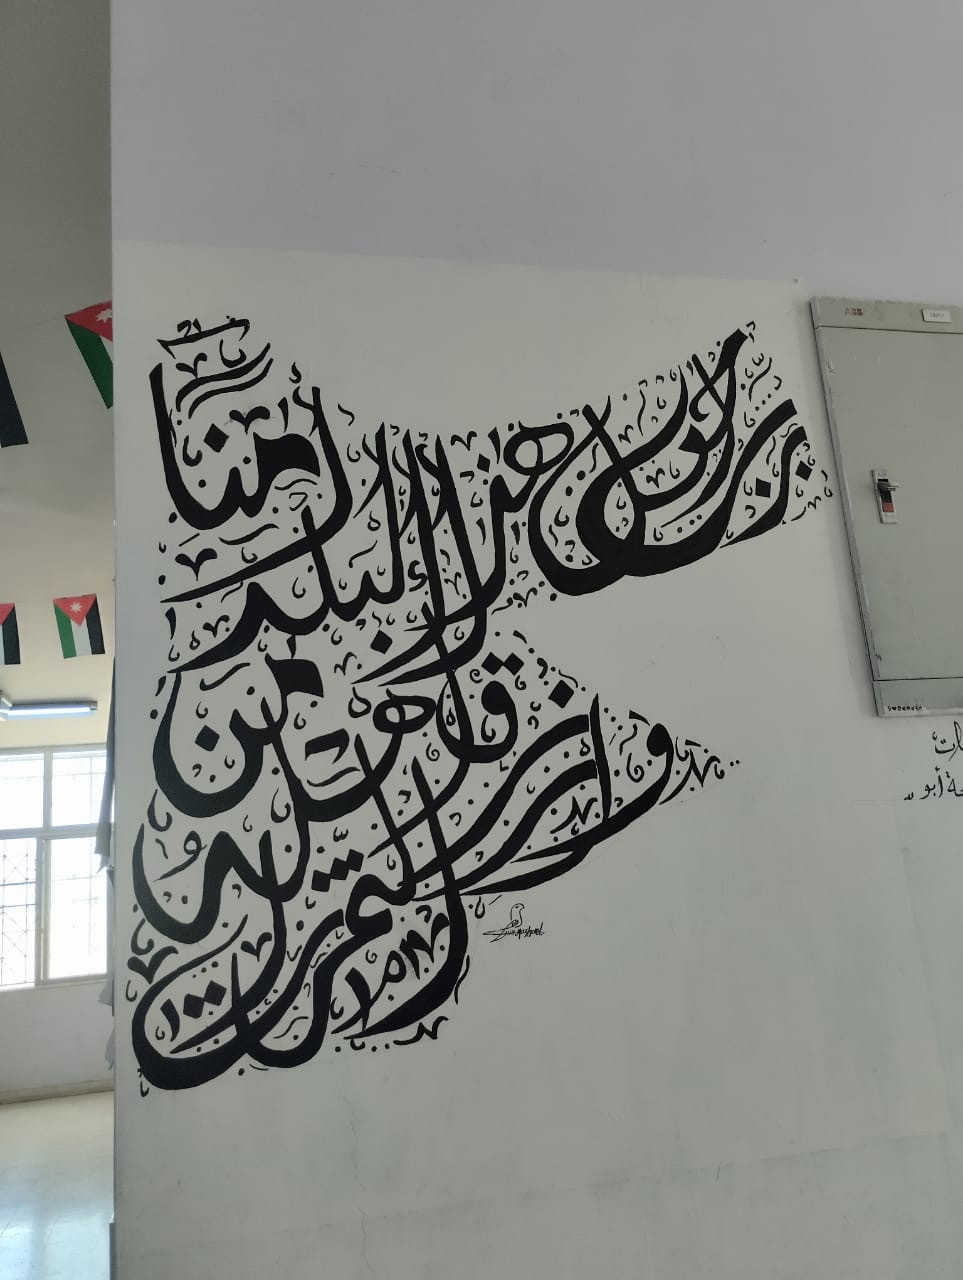 رب اجعل هذا البلد أمنا
وارزق أهله من الثمرات
ABB